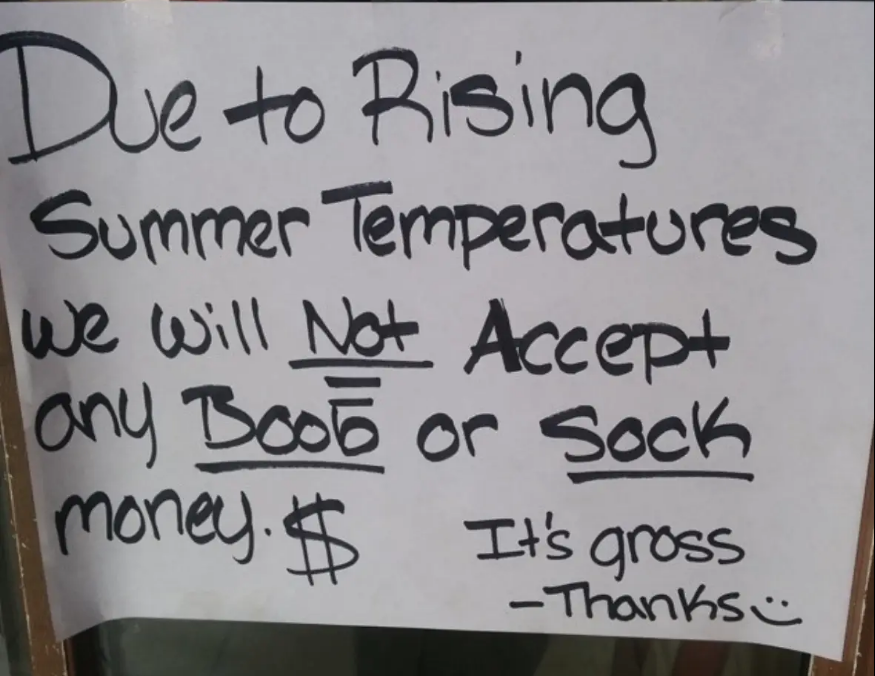 Due to Rising
Summer Temperatures
we will Not Accept
any Boob or Sock
money. $
It's gross
- Thanks :)